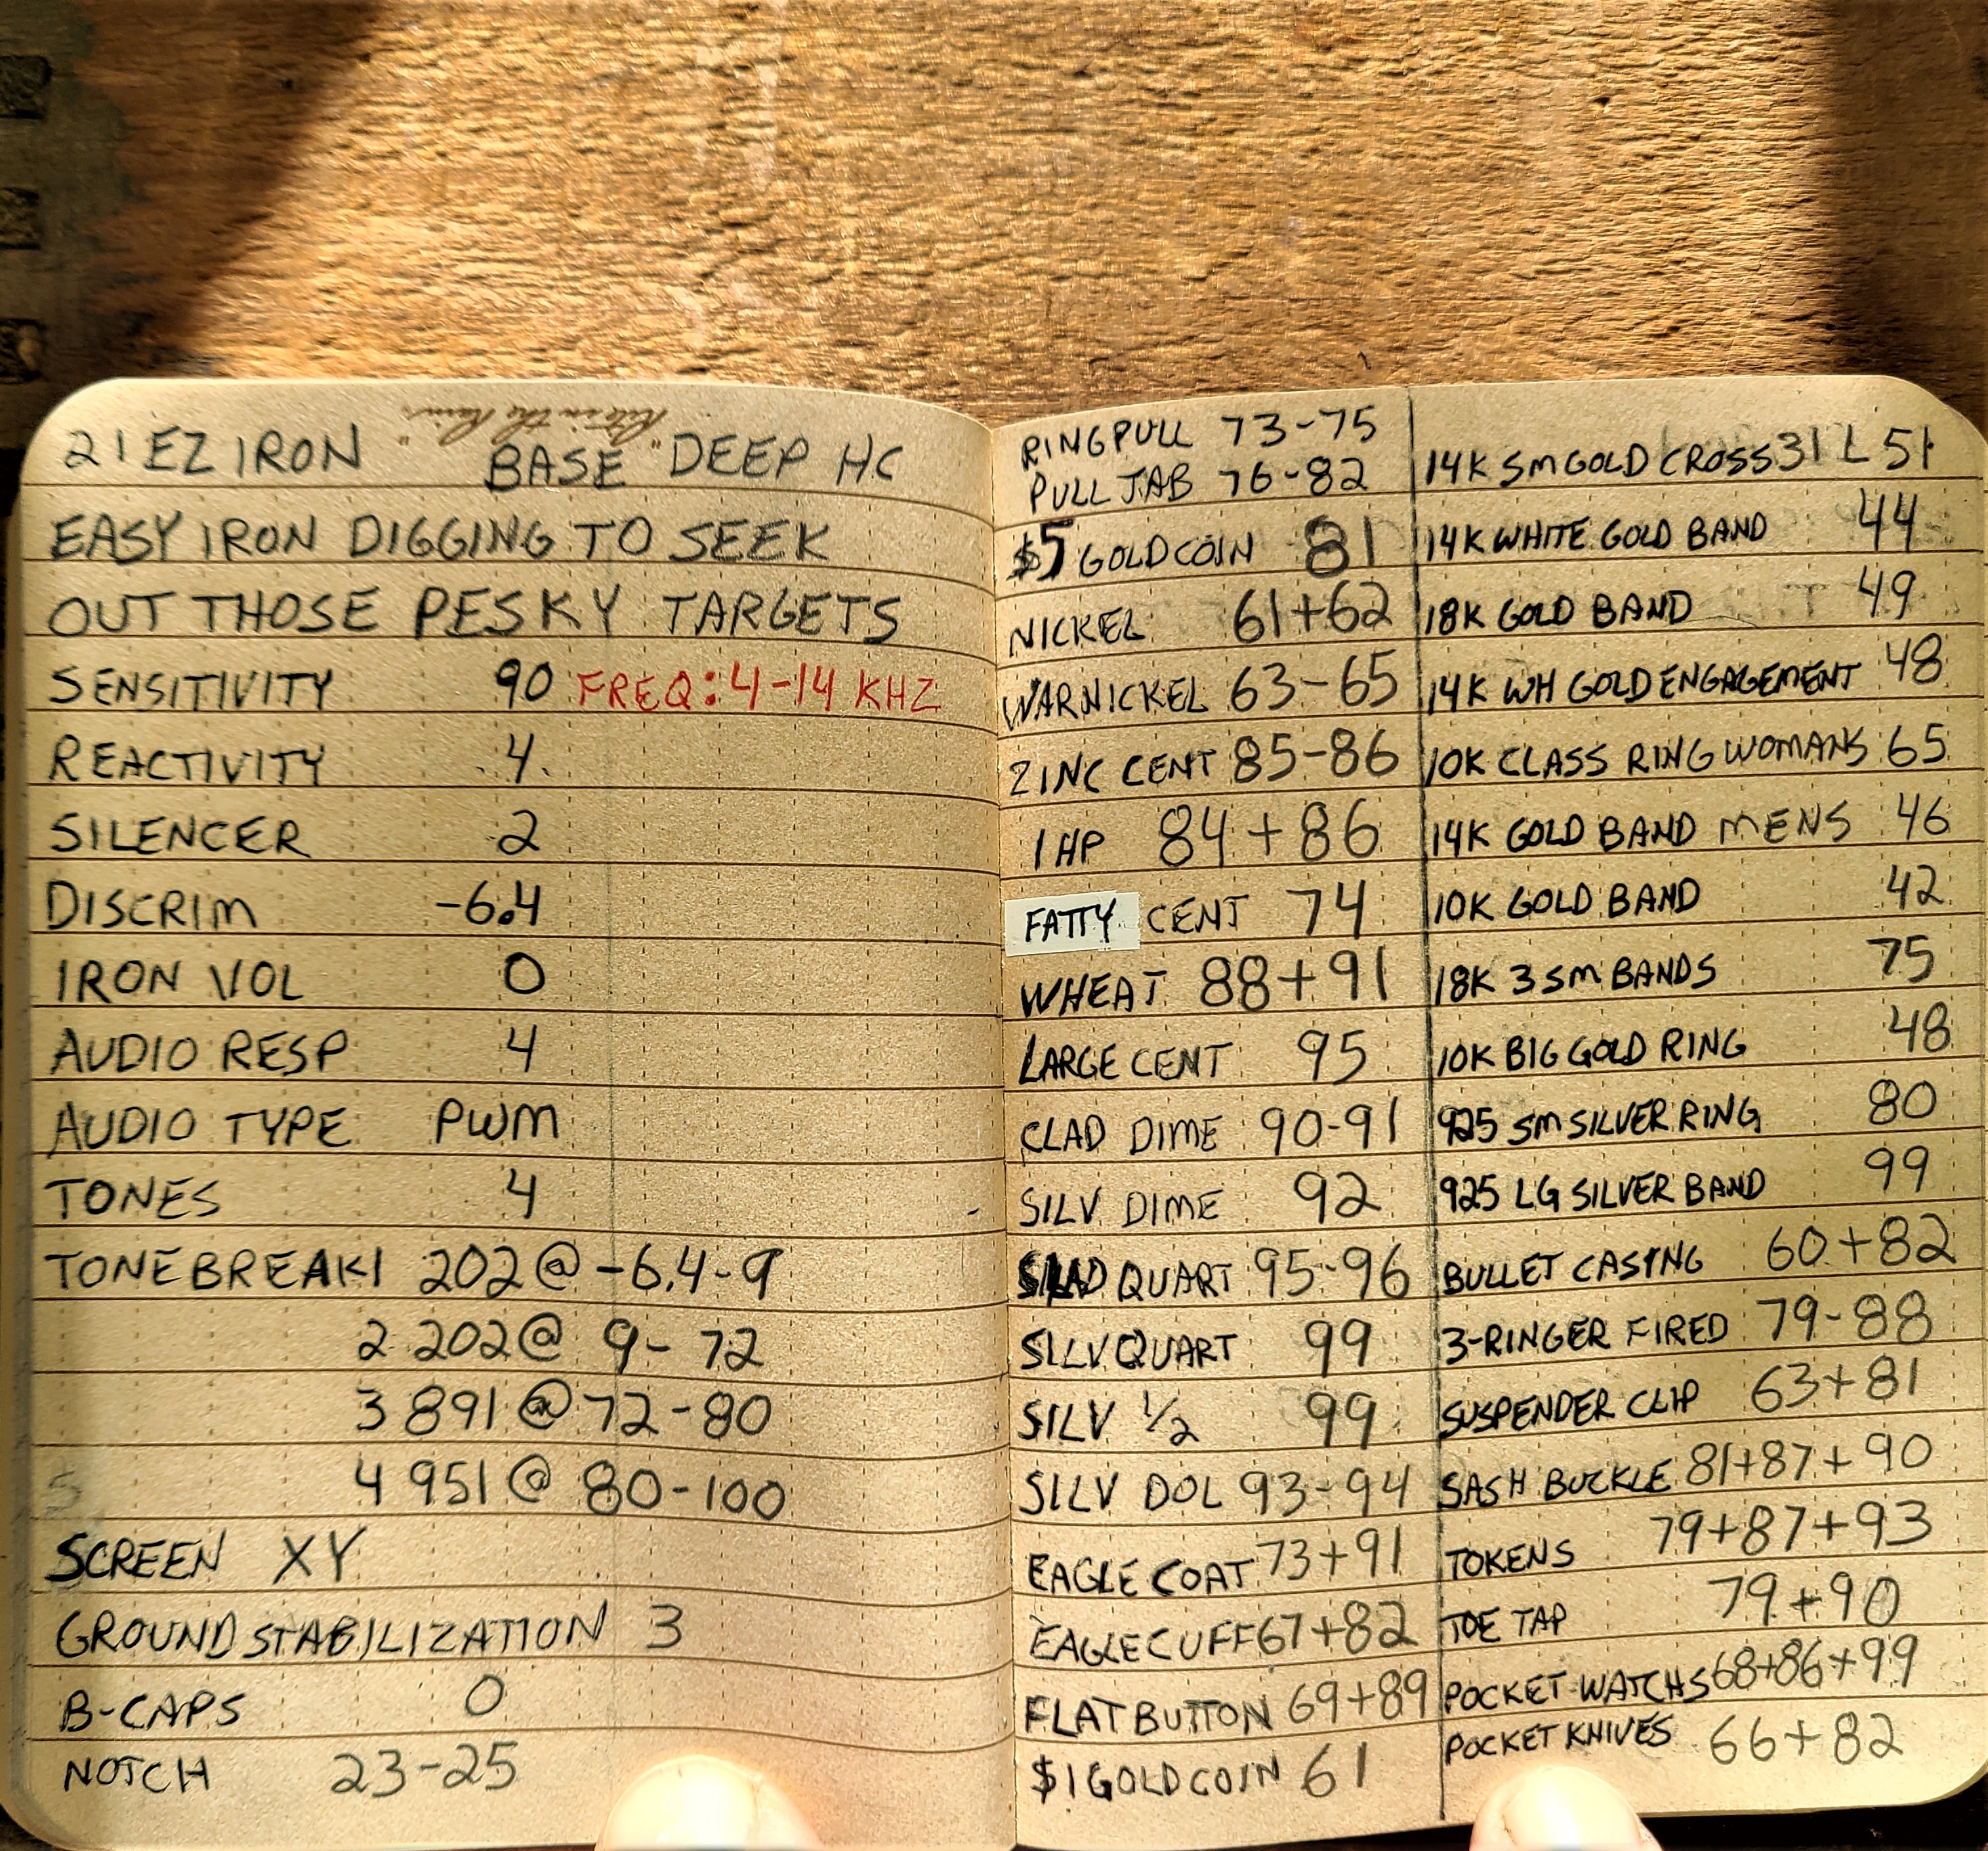 Rite in the Rain
21 EZ IRON BASE "DEEP HC
EASY IRON DIGGING TO SEEK
OUT THOSE PESKY TARGETS
SENSITIVITY 90 FREQ: 4-14 KHZ
REACTIVITY 4
SILENCER 2
DISCRIM -6.4
IRON VOL 0
AUDIO RESP 4
AUDIO TYPE PWM
TONES 4
TONEBREAK1 202@-6.4-9
2 202@ 9-72
3 891@72-80
4 951@ 80-100
SCREEN XY
GROUND STABILIZATION 3
B-CAPS 0
NOTCH 23-25
RING PULL 73-75
PULL TAB 76-82
$5 GOLD COIN 81
NICKEL 61+62
WARNICKEL 63-65
ZINC CENT 85-86
IHP 84+86
FATTY CENT 74
WHEAT 88+91
LARGE CENT 95
CLAD DIME 90-91
SILV DIME 92
QUART 95-96
SILV QUART 99
SILV 1/2 99
SILV DOL 93-94
EAGLE COAT 73+91
EAGLE CUFF 67+82
FLAT BUTTON 69+89
$1 GOLD COIN 61
14K SM GOLD CROSS 31 L 51
14K WHITE GOLD BAND 44
18K GOLD BAND 49
14K WH GOLD ENGAGEMENT 48
10K CLASS RING WOMANS 65
14K GOLD BAND MENS 46
10K GOLD BAND 42
18K 3 SM BANDS 75
10K BIG GOLD RING 48
925 SM SILVER RING 80
925 LG SILVER BAND 99
BULLET CASING 60+82
3-RINGER FIRED 79-88
SUSPENDER CLIP 63+81
SASH BUCKLE 81+87+90
TOKENS 79+87+93
TOE TAP 79+90
POCKET WATCHS 68+86+99
POCKET KNIVES 66+82